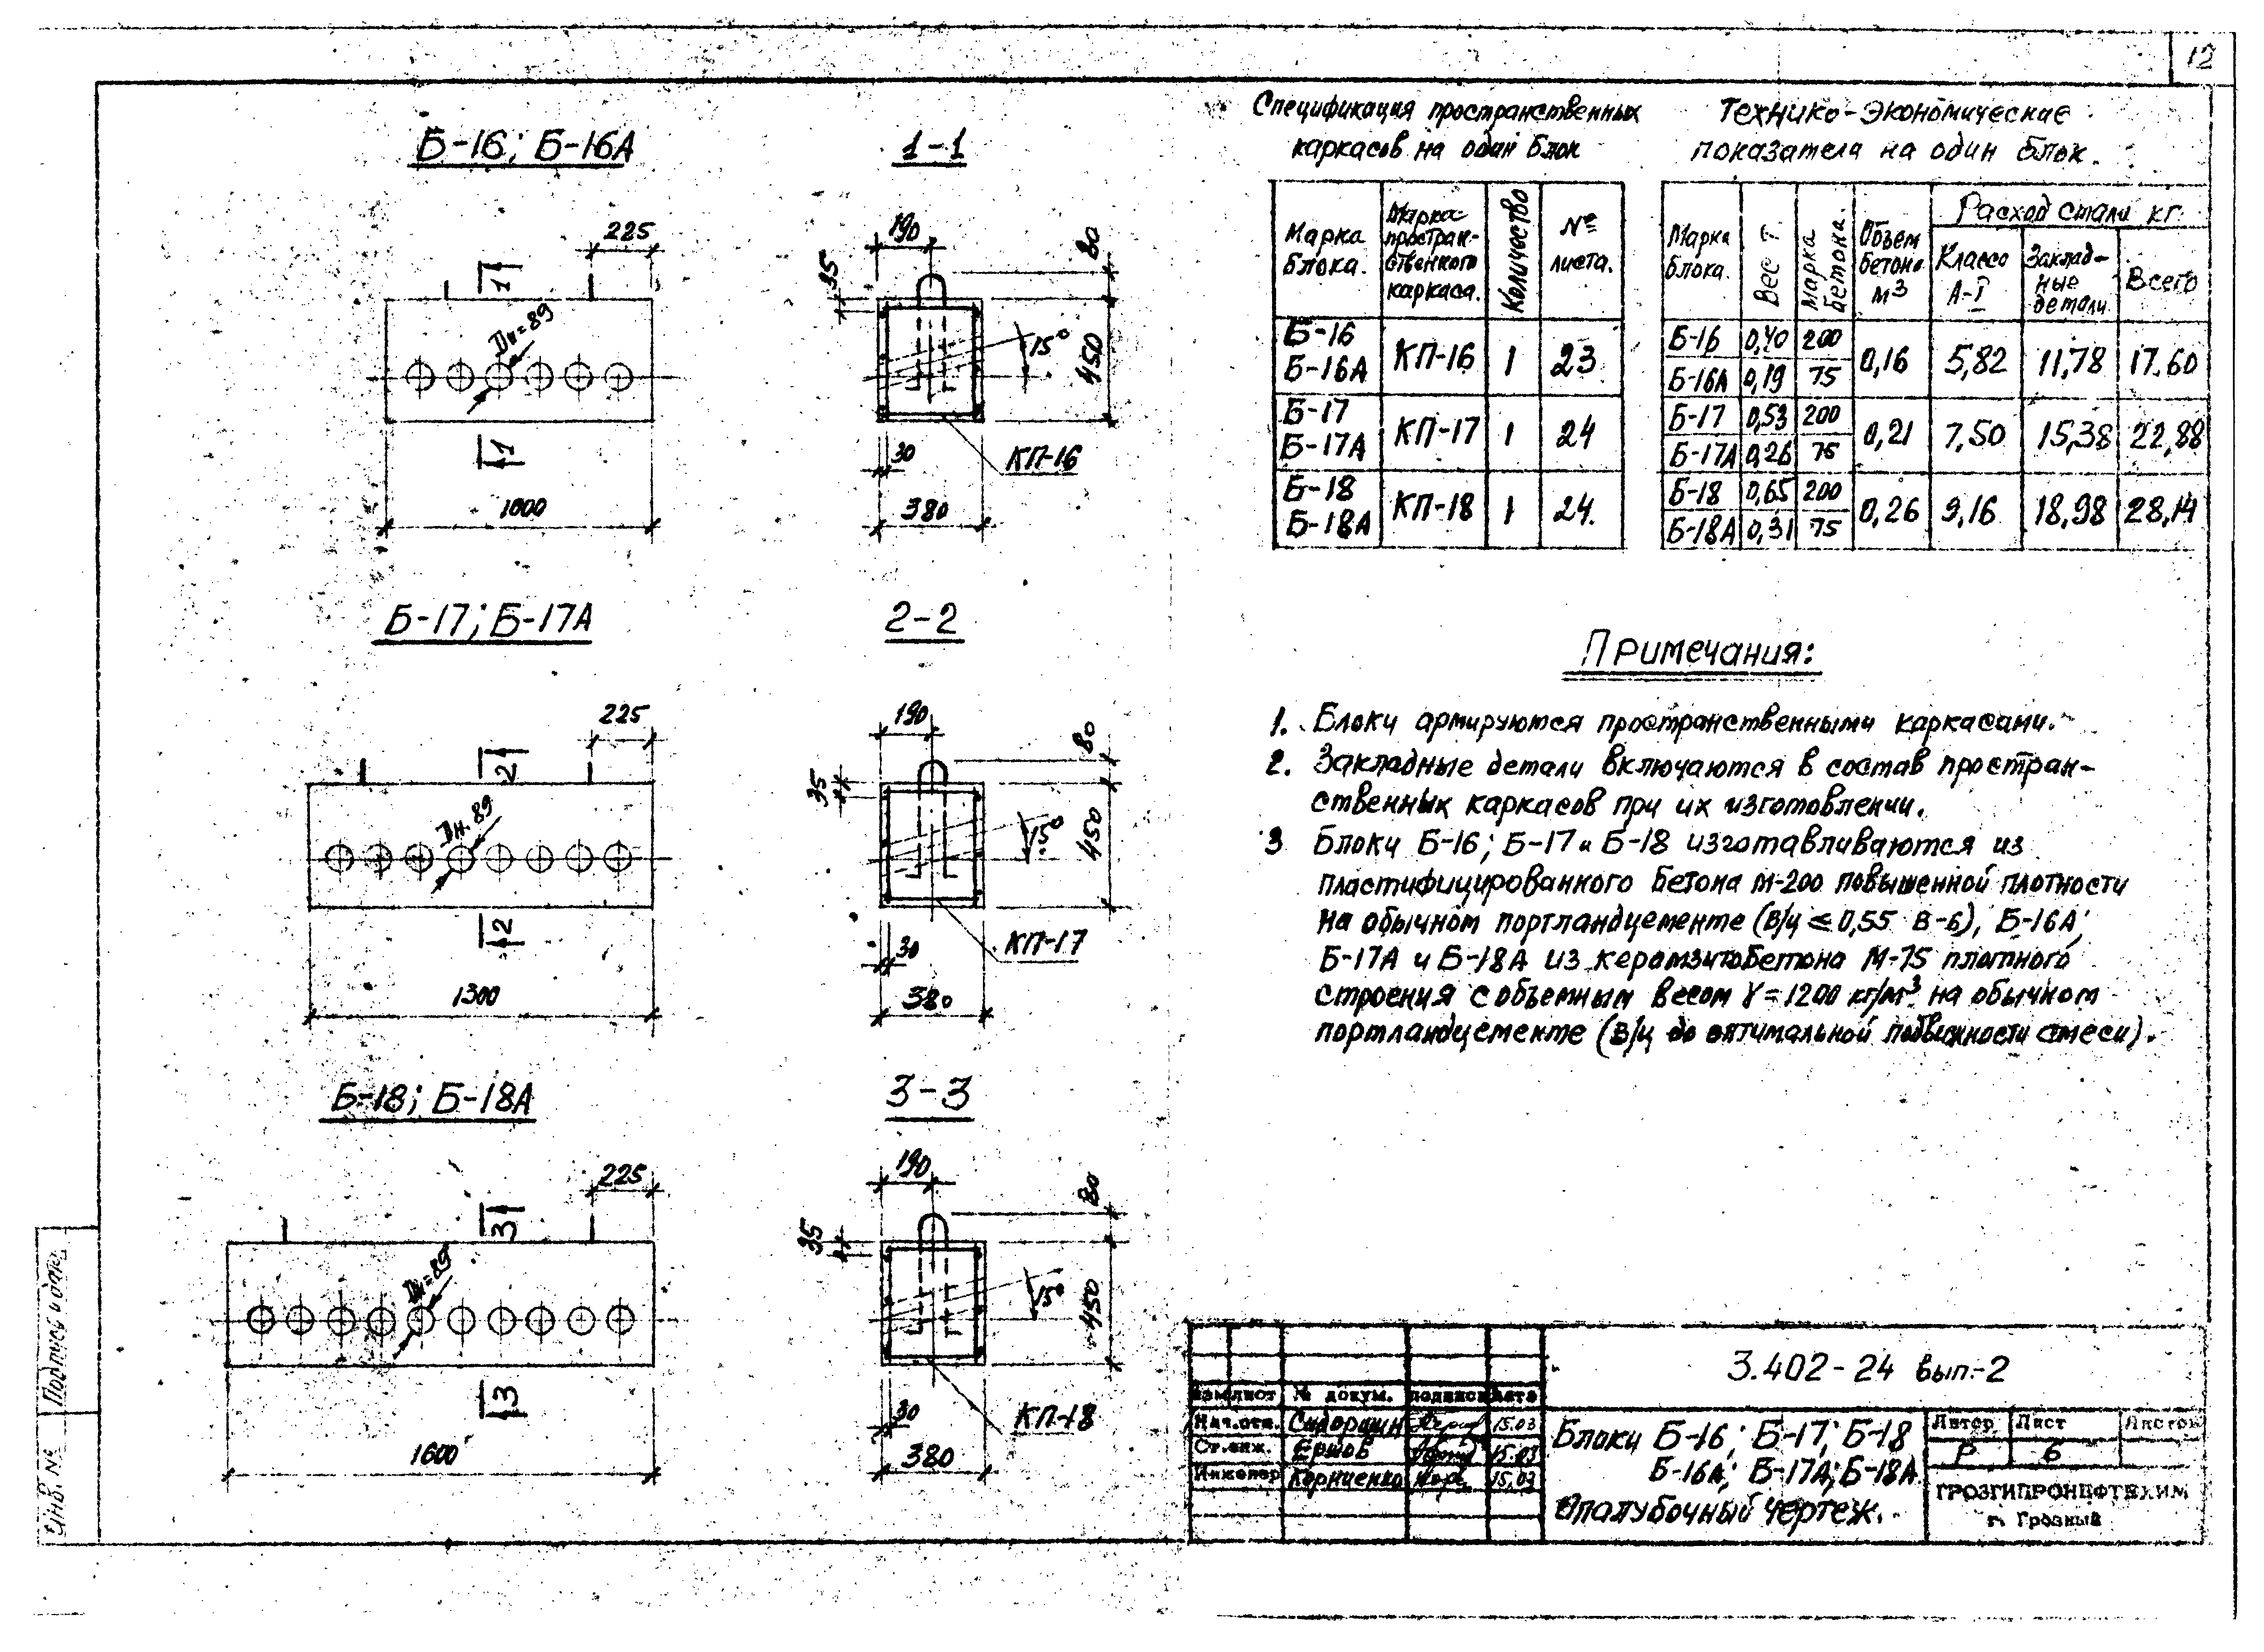 12
Б-16; Б-16А
1-1
225
190
80
35
1
Dн=89
15°
450
1
30
КП-16
1000
380
Б-17; Б-17А
2-2
225
190
80
35
2
Dн. 89
15°
450
2
30
КП-17
1300
380
Б-18; Б-18А
3-3
225
190
80
35
3
Dн=89
15°
450
3
30
КП-18
1600
380
Спецификация пространственных
каркасов на один блок
Марка блока. Марка простран-ственного каркаса. Количество № листа.
Б-16 Б-16А КП-16 1 23
Б-17 Б-17А КП-17 1 24
Б-18 Б-18А КП-18 1 24.
Технико-экономические
показатела на один блок.
Марка блока. Вес Т. Марка бетона. Объем бетона м3 Расход стали кг.
Класса А-I Заклад-ные детали Всего
Б-16 0,40 200 0,16 5,82 11,78 17.60
Б-16А 0,19 75
Б-17 0,53 200 0,21 7,50 15,38 22,88
Б-17А 0,26 75
Б-18 0,65 200 0,26 9,16 18,98 28,14
Б-18А 0,31 75
Примечания:
1. Блоки армируются пространственными каркасами.
2. Закладные детали включаются в состав простран-
ственных каркасов при их изготовлении.
3 Блоки Б-16; Б-17 и Б-18 изготавливаются из
пластифицированного бетона М-200 повышенной плотности
на обычном портландцементе (В/ц ≤ 0,55 В-6), Б-16А;
Б-17А и Б-18А из керамзитобетона М-75 плотного
строения с объемным весом γ=1200 кг/м3 на обычном
портландцементе (В/ц до оптимальной подвижности смеси).
3.402-24 вып.-2
Изм лист № докум. подпись дата
Нач.отд. Сидоршин 15.03
Ст.инж. Ершов 15.03
Инженер Корниенко 15.03
Блоки Б-16; Б-17; Б-18
Б-16А; Б-17А; Б-18А
Опалубочный чертеж.
Литер Лист Листов
Р 6
ГРОЗГИПРОНЕФТЕХИМ
г. Грозный
Подпись и дата
Инв. №